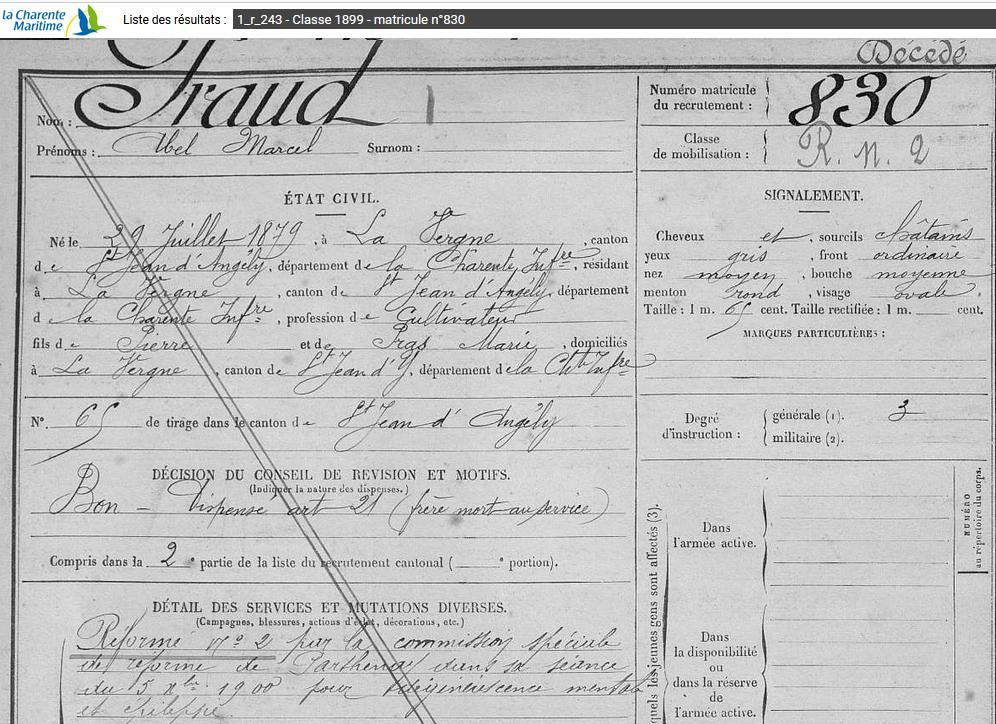 la Charente
Maritime
Liste des résultats : 1_r_243 - Classe 1899 - matricule n°830
Décédé
Nom : Fraud
Prénoms : Abel Marcel Surnom :
Numéro matricule
du recrutement : 830
Classe
de mobilisation : R. n. 2
ÉTAT CIVIL.
Né le 29 Juillet 1879, à La Vergne, canton
de St Jean d'Angély, département de la Charente Infre, résidant
à La Vergne, canton de St Jean d'Angély, département
d la Charente Infre, profession de Cultivateur
fils de Pierre et de Pras Marie, domiciliés
à La Vergne, canton de St Jean d'Y, département de la Chte Infre
N° 65 de tirage dans le canton de St Jean d'Angély
DÉCISION DU CONSEIL DE REVISION ET MOTIFS.
(Indiquer la nature des dispenses.)
Bon - Dispensé art 21 (frère mort au service)
Compris dans la 2e partie de la liste du recrutement cantonal ( e portion).
DÉTAIL DES SERVICES ET MUTATIONS DIVERSES.
(Campagnes, blessures, actions d'éclat, décorations, etc.)
Réformé n° 2 par la commission spéciale
de réforme de Parthenay dans sa séance
du 5 Xbre 1900 pour dégénérescence mentale
et
SIGNALEMENT.
Cheveux et, sourcils châtains
yeux gris, front ordinaire
nez moyen, bouche moyenne
menton rond, visage ovale
Taille : 1 m. 65 cent. Taille rectifiée : 1 m. cent.
MARQUES PARTICULIÈRES :
Degré
d'instruction :
générale (1). 3
militaire (2).
quels les jeunes gens sont affectés (3).
Dans
l'armée active.
Dans
la disponibilité
ou
dans la réserve
de
l'armée active.
NUMÉRO
au répertoire du corps.